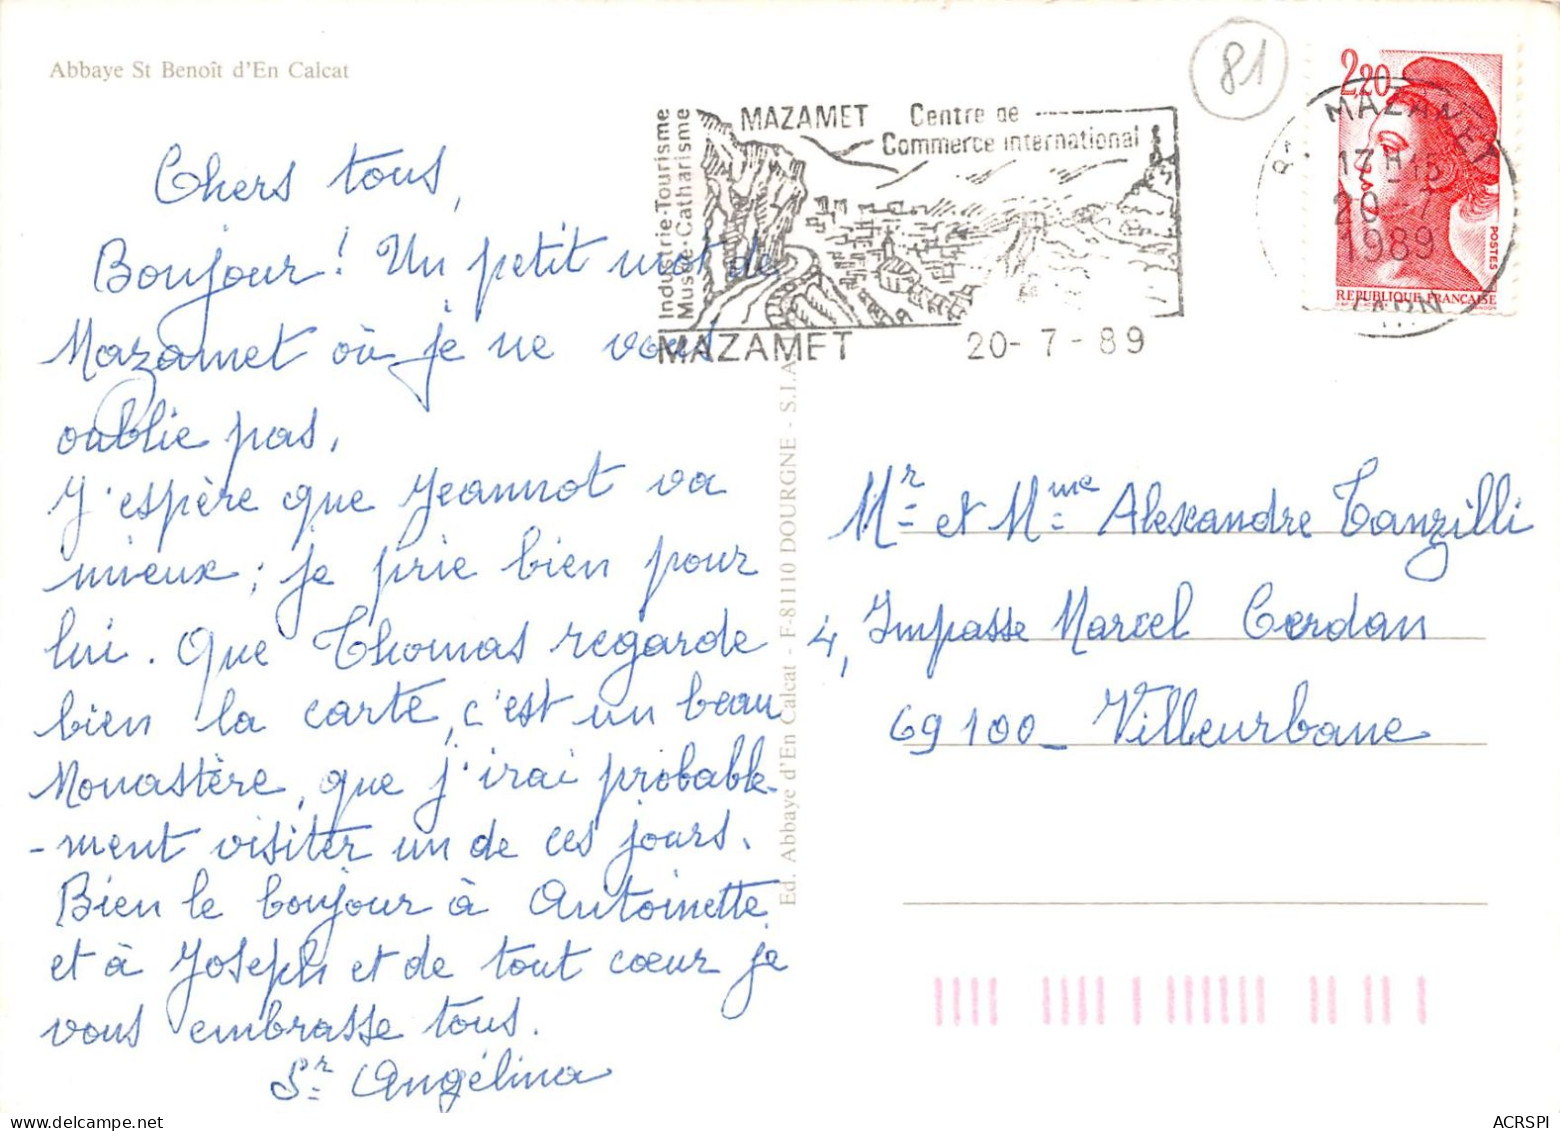 Abbaye St Benoît d'En Calcat
81
Chers tous,
Bonjour ! Un petit mot de
Mazamet où je ne vous
oublie pas.
J'espère que Jeannot va
mieux ; je prie bien pour
lui. Que Thomas regarde
bien la carte, c'est un beau
Monastère, que j'irai probable-
-ment visiter un de ces jours.
Bien le bonjour à Antoinette
et à Joseph et de tout cœur je
vous embrasse tous.
Sr Angélina
Industrie-Tourisme
Musé-Catharisme
MAZAMET Centre de
Commerce international
MAZAMET 20-7-89
2,20
MAZAMET
17H15
20-7
1989
TARN
POSTES
REPUBLIQUE FRANÇAISE
Ed. Abbaye d'En Calcat - F-81110 DOURGNE - S.I.A.
Mr et Mme Alexandre Tanzilli
4, Impasse Marcel Cerdan
69100_ Villeurbane
ACRSPI